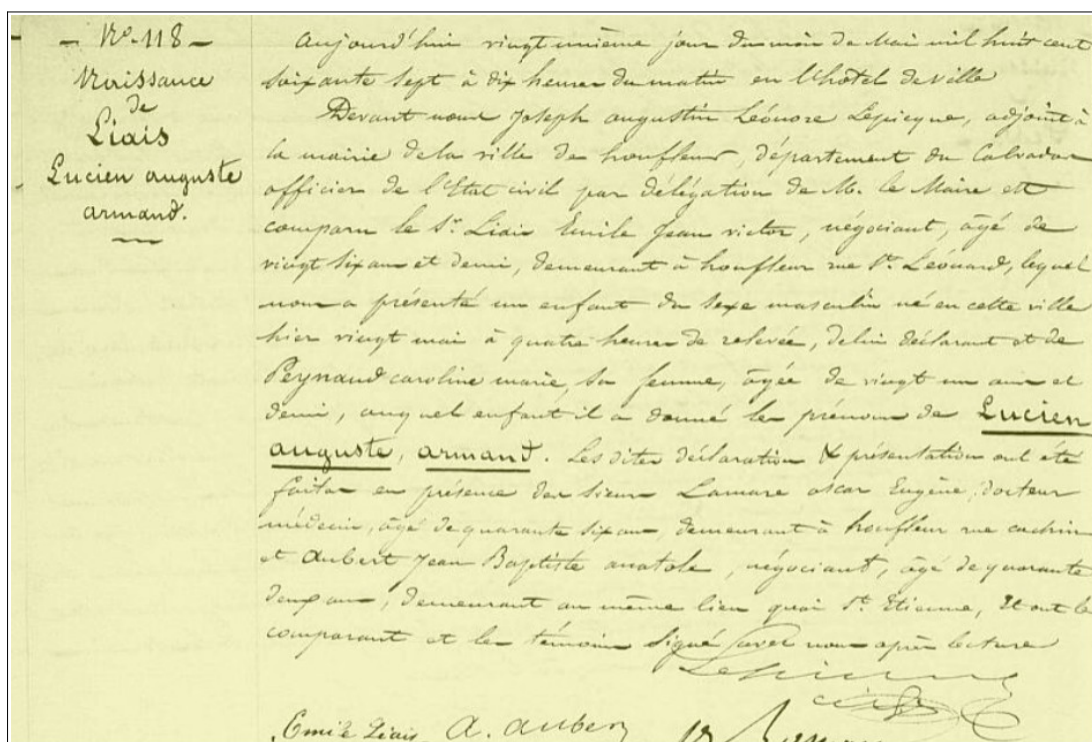 - No. 118 -
Naissance
de
Liais
Lucien auguste
armand.
aujourd'hui vingt unième jour du mois de Mai mil huit cent
soixante sept à dix heures du matin en l'hôtel de ville
Devant nous Joseph augustin Léonore Lepicque, adjoint à
la mairie de la ville de honfleur, département du Calvados
officier de l'Etat civil par délégation de M. le Maire est
comparu le Sr. Liais Emile Jean victor, négociant, âgé de
vingt six ans et demi, demeurant à honfleur rue St. Léonard, lequel
nous a présenté un enfant du sexe masculin né en cette ville
hier vingt mai à quatre heures de relevée, de lui déclarant et de
Peynaud caroline marie, sa femme, âgée de vingt un ans et
demi, auquel enfant il a donné les prénoms de Lucien
auguste, armand. Les dites déclaration & présentation ont été
faites en présence des sieurs Lamare oscar Eugène, docteur
médecin, âgé de quarante six ans, demeurant à honfleur rue cachin
et Aubert Jean Baptiste anatole, négociant, âgé de quarante
deux ans, demeurant au même lieu quai St. Etienne, Et ont le
comparant et les témoins signé avec nous après lecture
Emile Liais A. auber